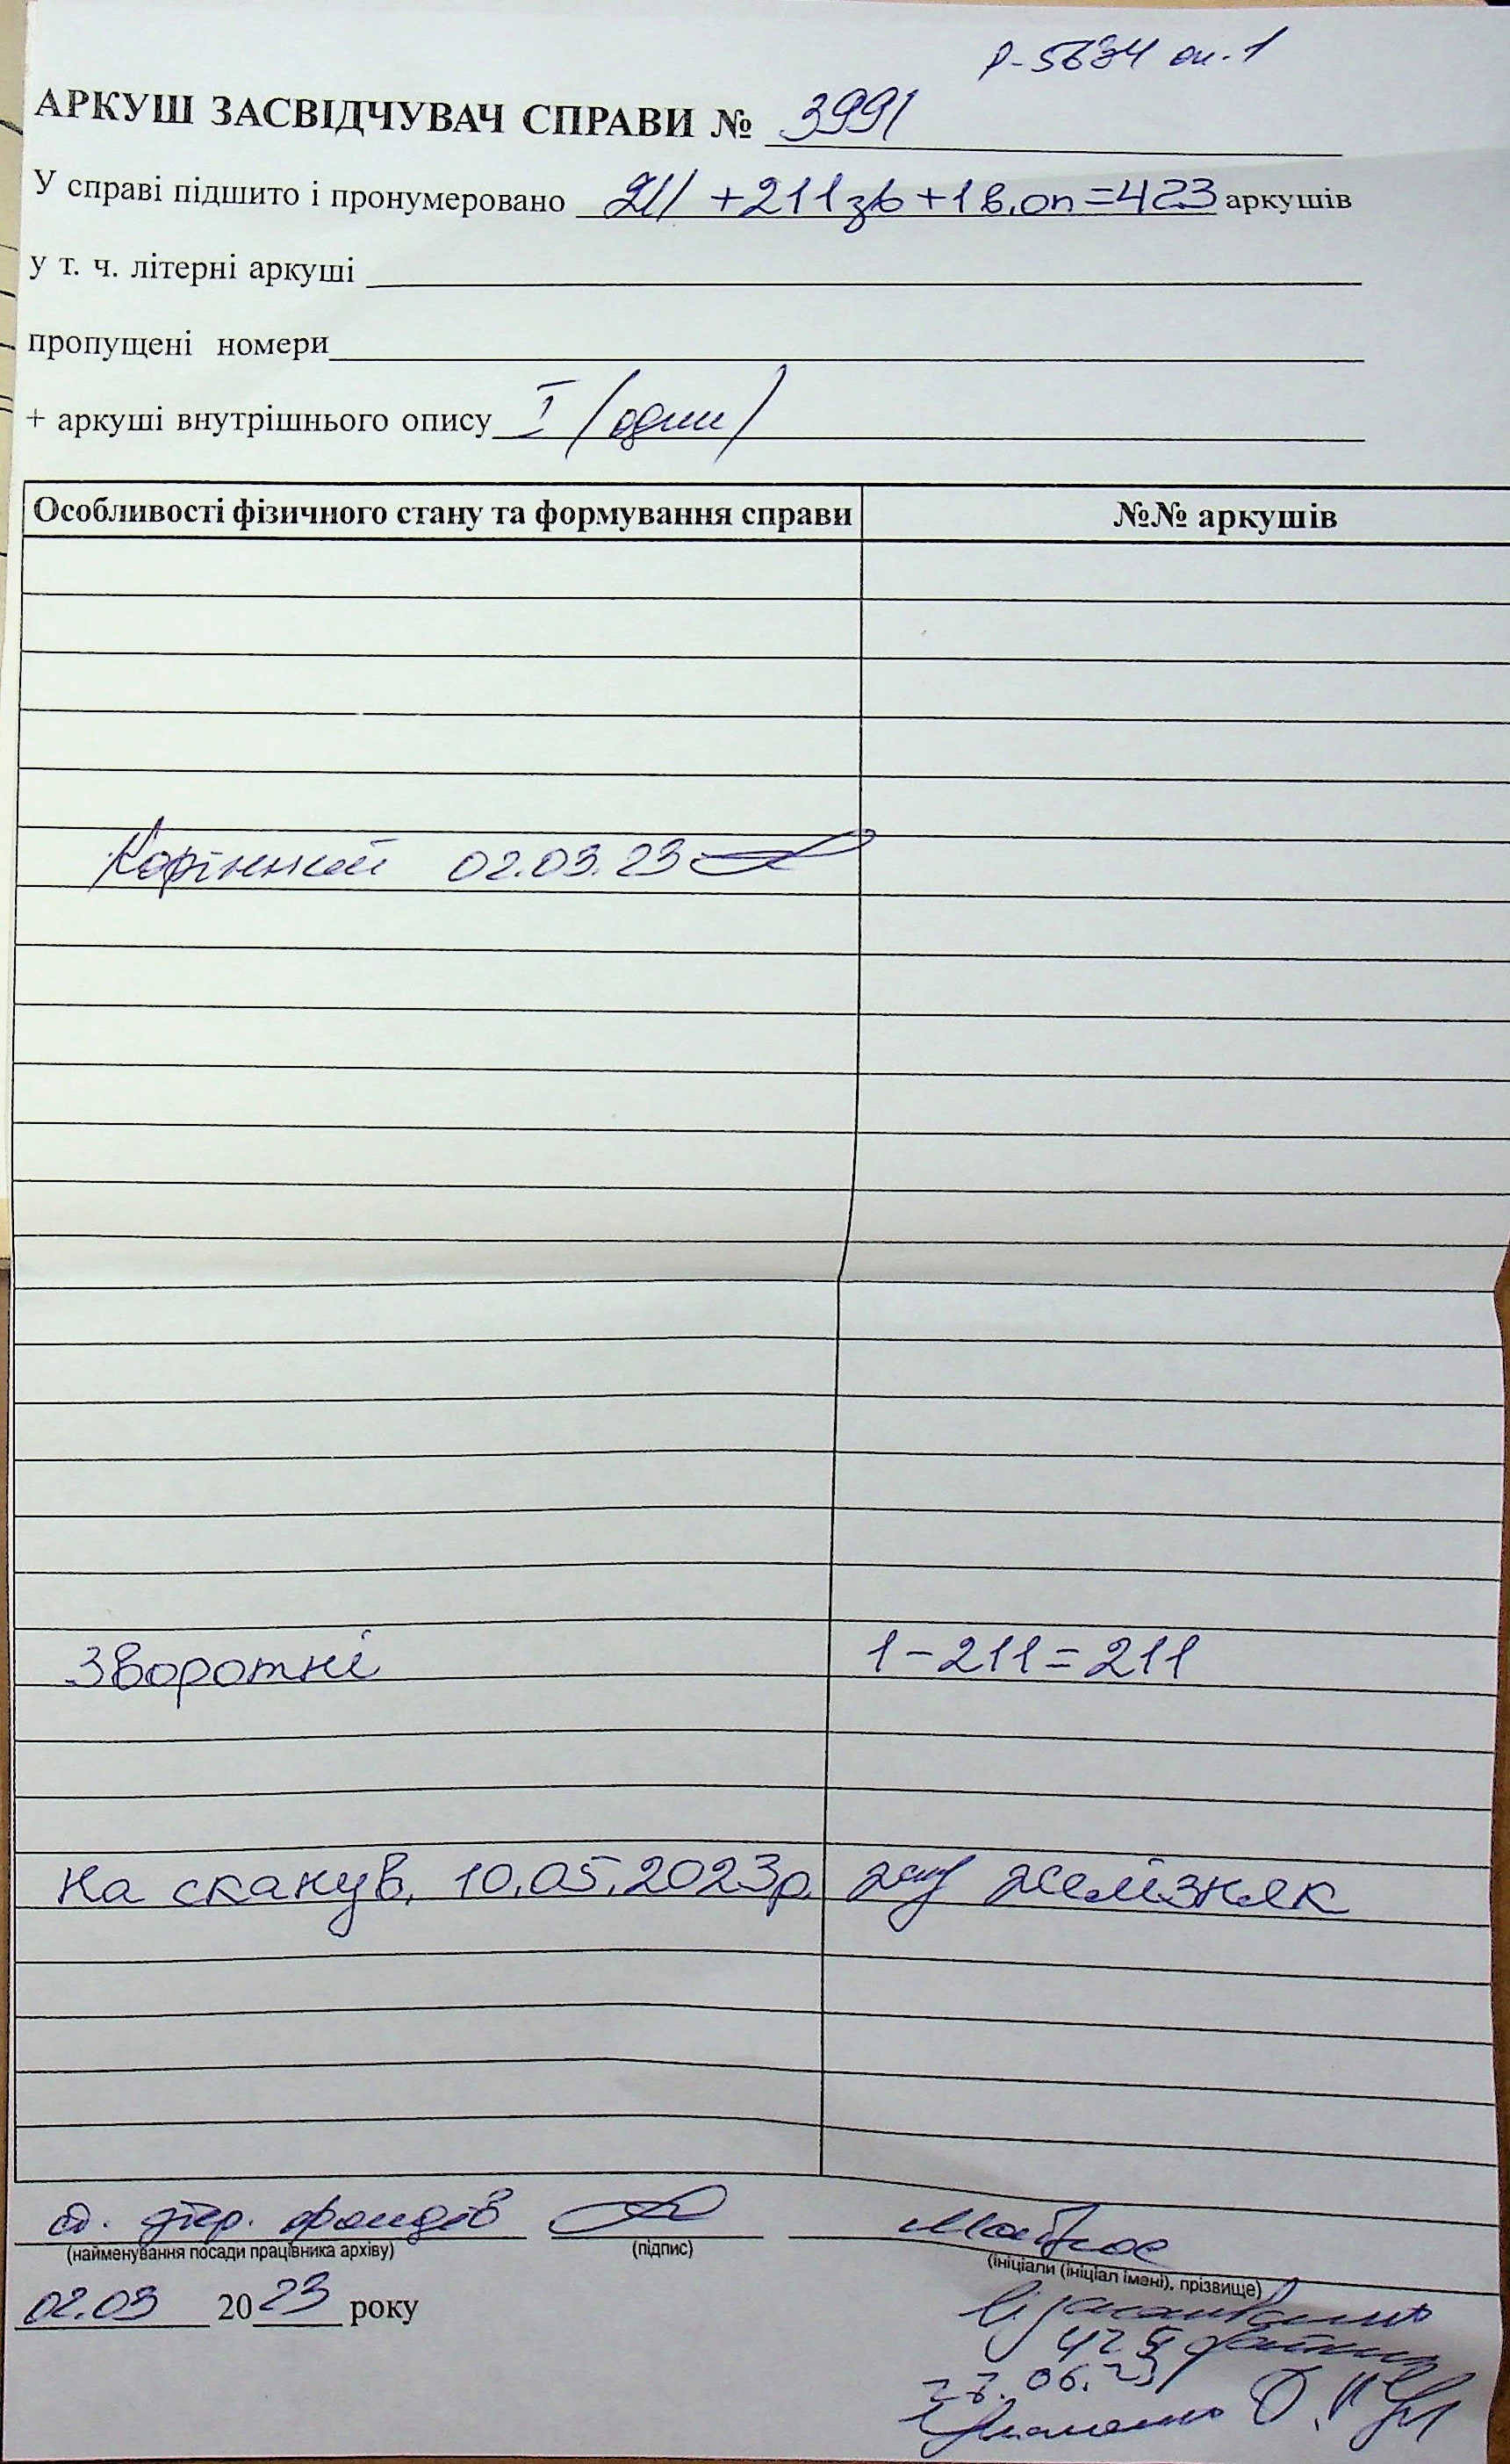 Р-5634 оп.1
АРКУШ ЗАСВІДЧУВАЧ СПРАВИ № 3991
У справі підшито і пронумеровано 211 +211зв+1в.оп=423 аркушів
у т. ч. літерні аркуші
пропущені номери
+ аркуші внутрішнього опису I (один)
Особливості фізичного стану та формування справи №№ аркушів
02.03.23
Зворотні 1-211=211
На сканув. 10.05.2023р. Желізняк
фондів
(найменування посади працівника архіву) (підпис) (ініціали (ініціал імені), прізвище)
02.03 2023 року